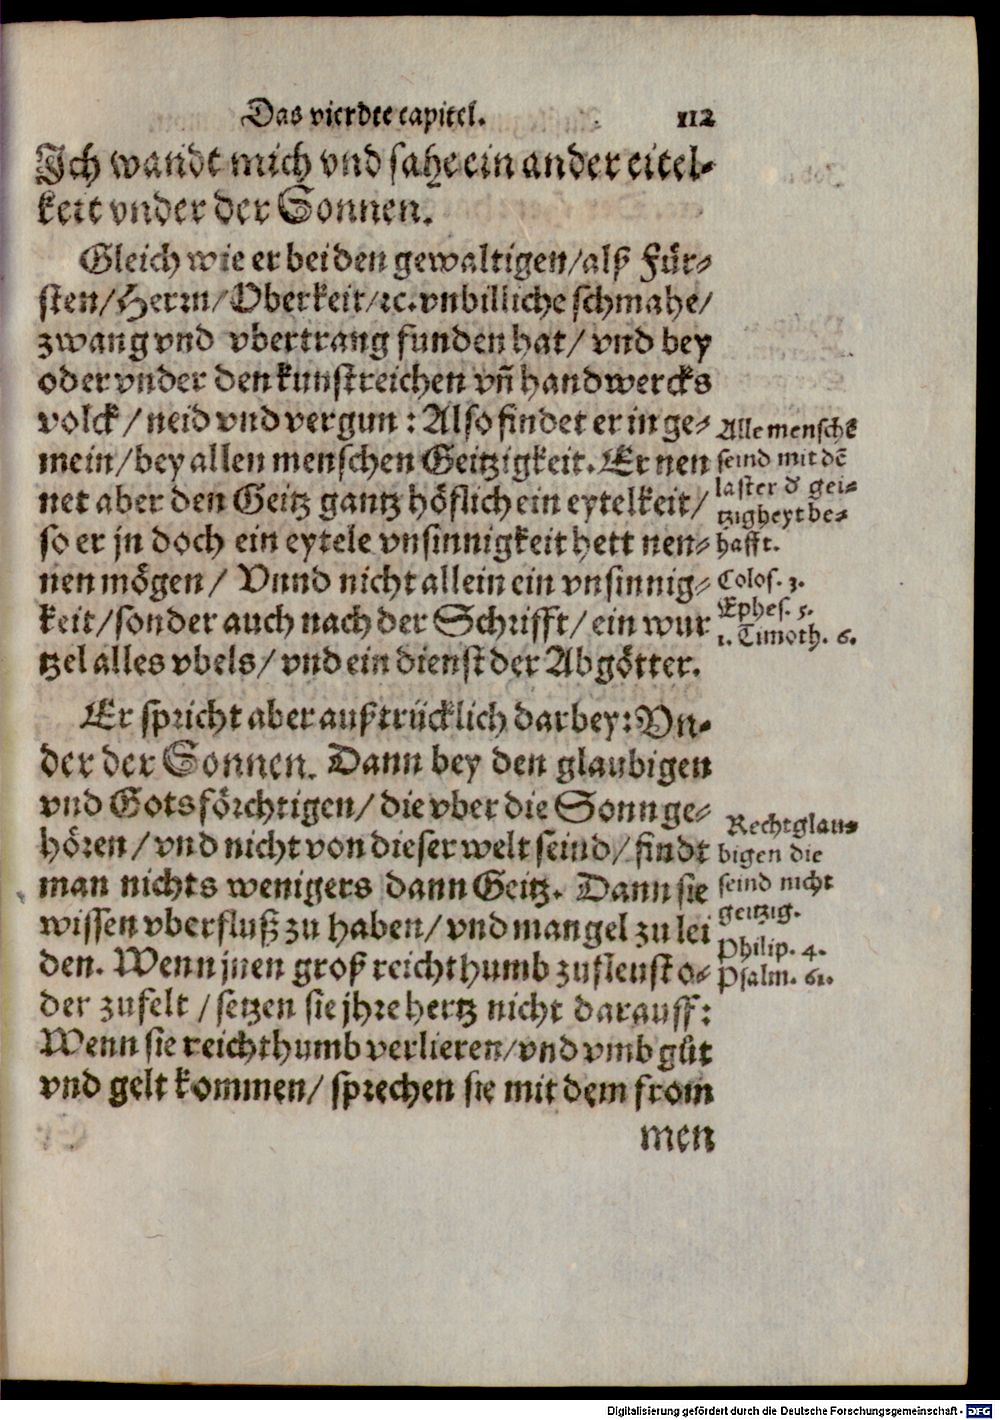 Das vierdte capitel. 112
Ich wandt mich vnd sahe ein ander eitel-
keit vnder der Sonnen.
Gleich wie er bei den gewaltigen/ alß Für-
sten/ Herrn/ Oberkeit/ ꝛc. vnbilliche schmahe/
zwang vnd vbertrang funden hat/ vnd bey
oder vnder den kunstreichen vñ handwercks
volck/ neid vnd vergun: Also findet er in ge-
mein/ bey allen menschen Geitzigkeit. Er nen
net aber den Geitz gantz höflich ein eytelkeit/
so er jn doch ein eytele vnsinnigkeit hett nen-
nen mögen/ Vnnd nicht allein ein vnsinnig-
keit/ sonder auch nach der Schrifft/ ein wur
tzel alles vbels/ vnd ein dienst der Abgötter.
Alle menschē
seind mit dē
laster d gei-
tzigheyt be-
hafft.
Colos. 3.
Ephes. 5.
1. Timoth. 6.
Er spricht aber außtrücklich darbey: Vn-
der der Sonnen. Dann bey den glaubigen
vnd Gotsförchtigen/ die vber die Sonn ge-
hören/ vnd nicht von dieser welt seind/ findt
man nichts wenigers dann Geitz. Dann sie
wissen vberfluß zu haben/ vnd mangel zu lei
den. Wenn jnen groß reichthumb zufleust o-
der zufelt/ setzen sie jhre hertz nicht darauff:
Wenn sie reichthumb verlieren/ vnd vmb gůt
vnd gelt kommen/ sprechen sie mit dem from
men
Rechtglau-
bigen die
seind nicht
geitzig.
Philip. 4.
Psalm. 61.
Digitalisierung gefördert durch die Deutsche Forschungsgemeinschaft - DFG